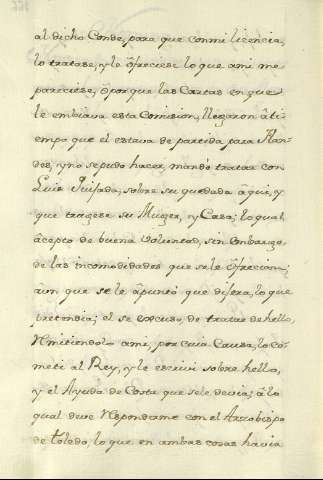 al dicho Conde, para que con mi licencia,
lo tratase, y le ofreciese lo que a mi me
pareciese, y por que las Cartas en que
le embiava esta Comision, llegaron a ti-
empo que el estava de partida para Flan-
des, y no se pudo hacer, mandó tratar con
Luis Quijada, sobre su quedada aqui, y
que tragese su Muger, y Casa; lo qual
acepto de buena voluntad, sin embargo
de las incomodidades que se le ofrecian;
aun que se le apuntó que digera, lo que
pretendia; el se escusó, de tratar de hello,
Remitiendolo a mi, por cuia Causa, lo co-
meti al Rey, y le escrivi sobre hello,
y el Ayuda de Costa que se le devia; a lo
qual deve Responderme con el Arzobispo
de Toledo, lo que en ambas cosas havia